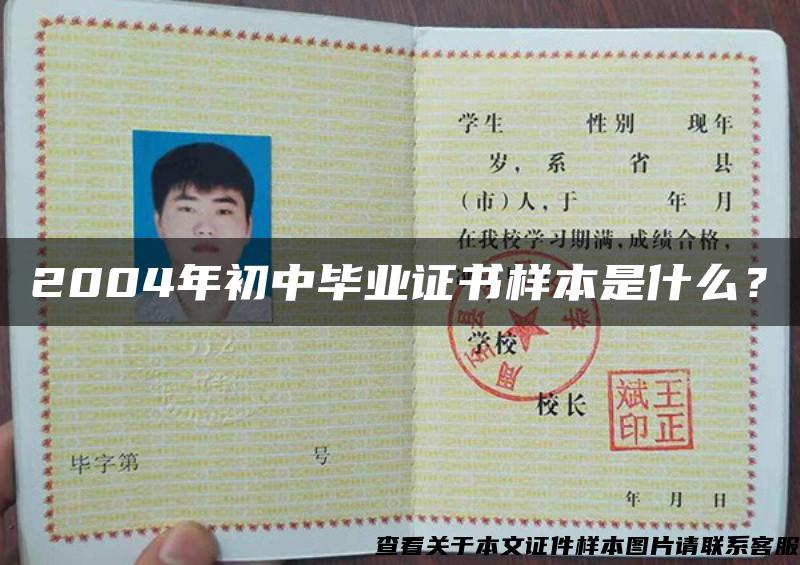 学生 性别 现年
岁，系 省 县
(市)人，于 年 月
在我校学习期满，成绩合格，
2004年初中毕业证书样本是什么？
学校
校长
王正
斌印
毕字第 号
年 月 日
查看关于本文证件样本图片请联系客服